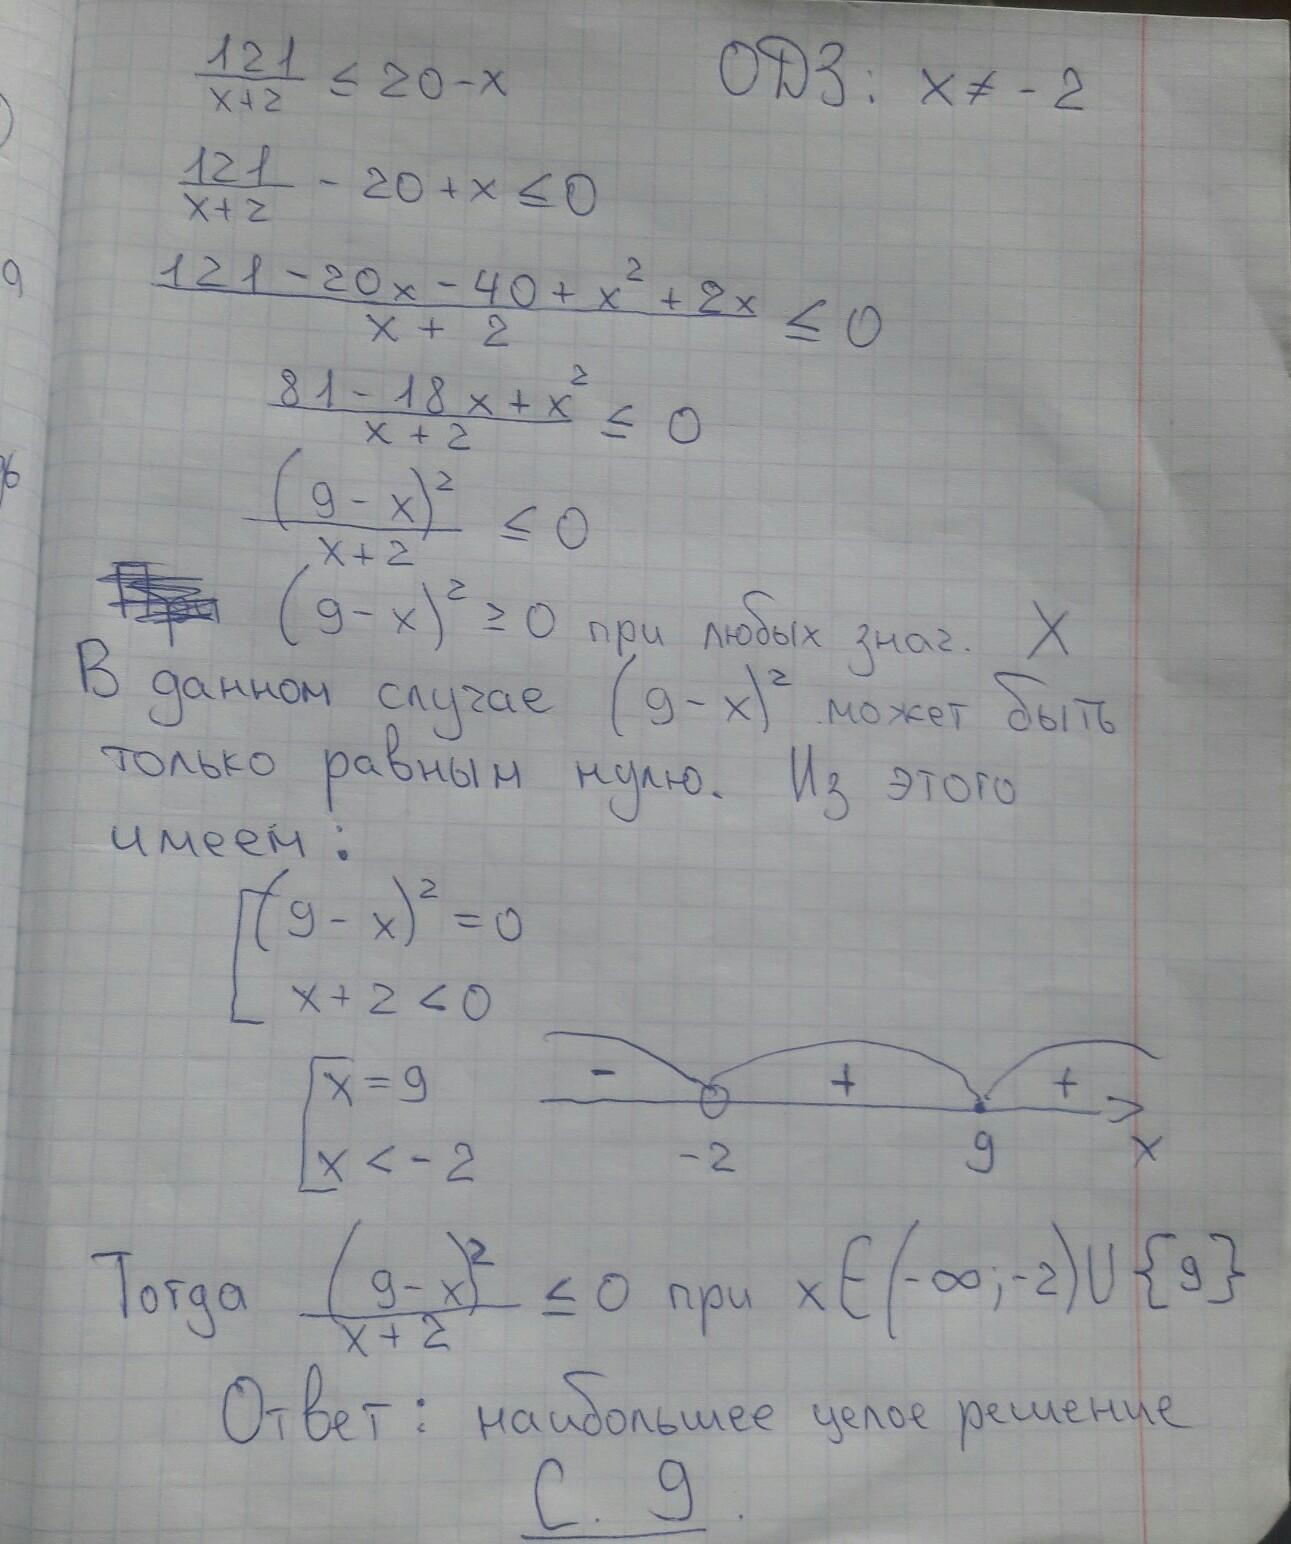 121/(x+2) ≤ 20-x ОДЗ: x ≠ -2
121/(x+2) - 20 + x ≤ 0
(121 - 20x - 40 + x² + 2x)/(x + 2) ≤ 0
(81 - 18x + x²)/(x+2) ≤ 0
(9 - x)²/(x+2) ≤ 0
(9-x)² ≥ 0 при любых знач. X
В данном случае (9-x)² может быть
только равным нулю. Из этого
имеем:
[(9-x)² = 0
x+2 < 0
[x = 9
x < -2
- + +
-2 9 x
Тогда (9-x)²/(x+2) ≤ 0 при x∈(-∞;-2)∪{9}
Ответ: наибольшее целое решение
С. 9.